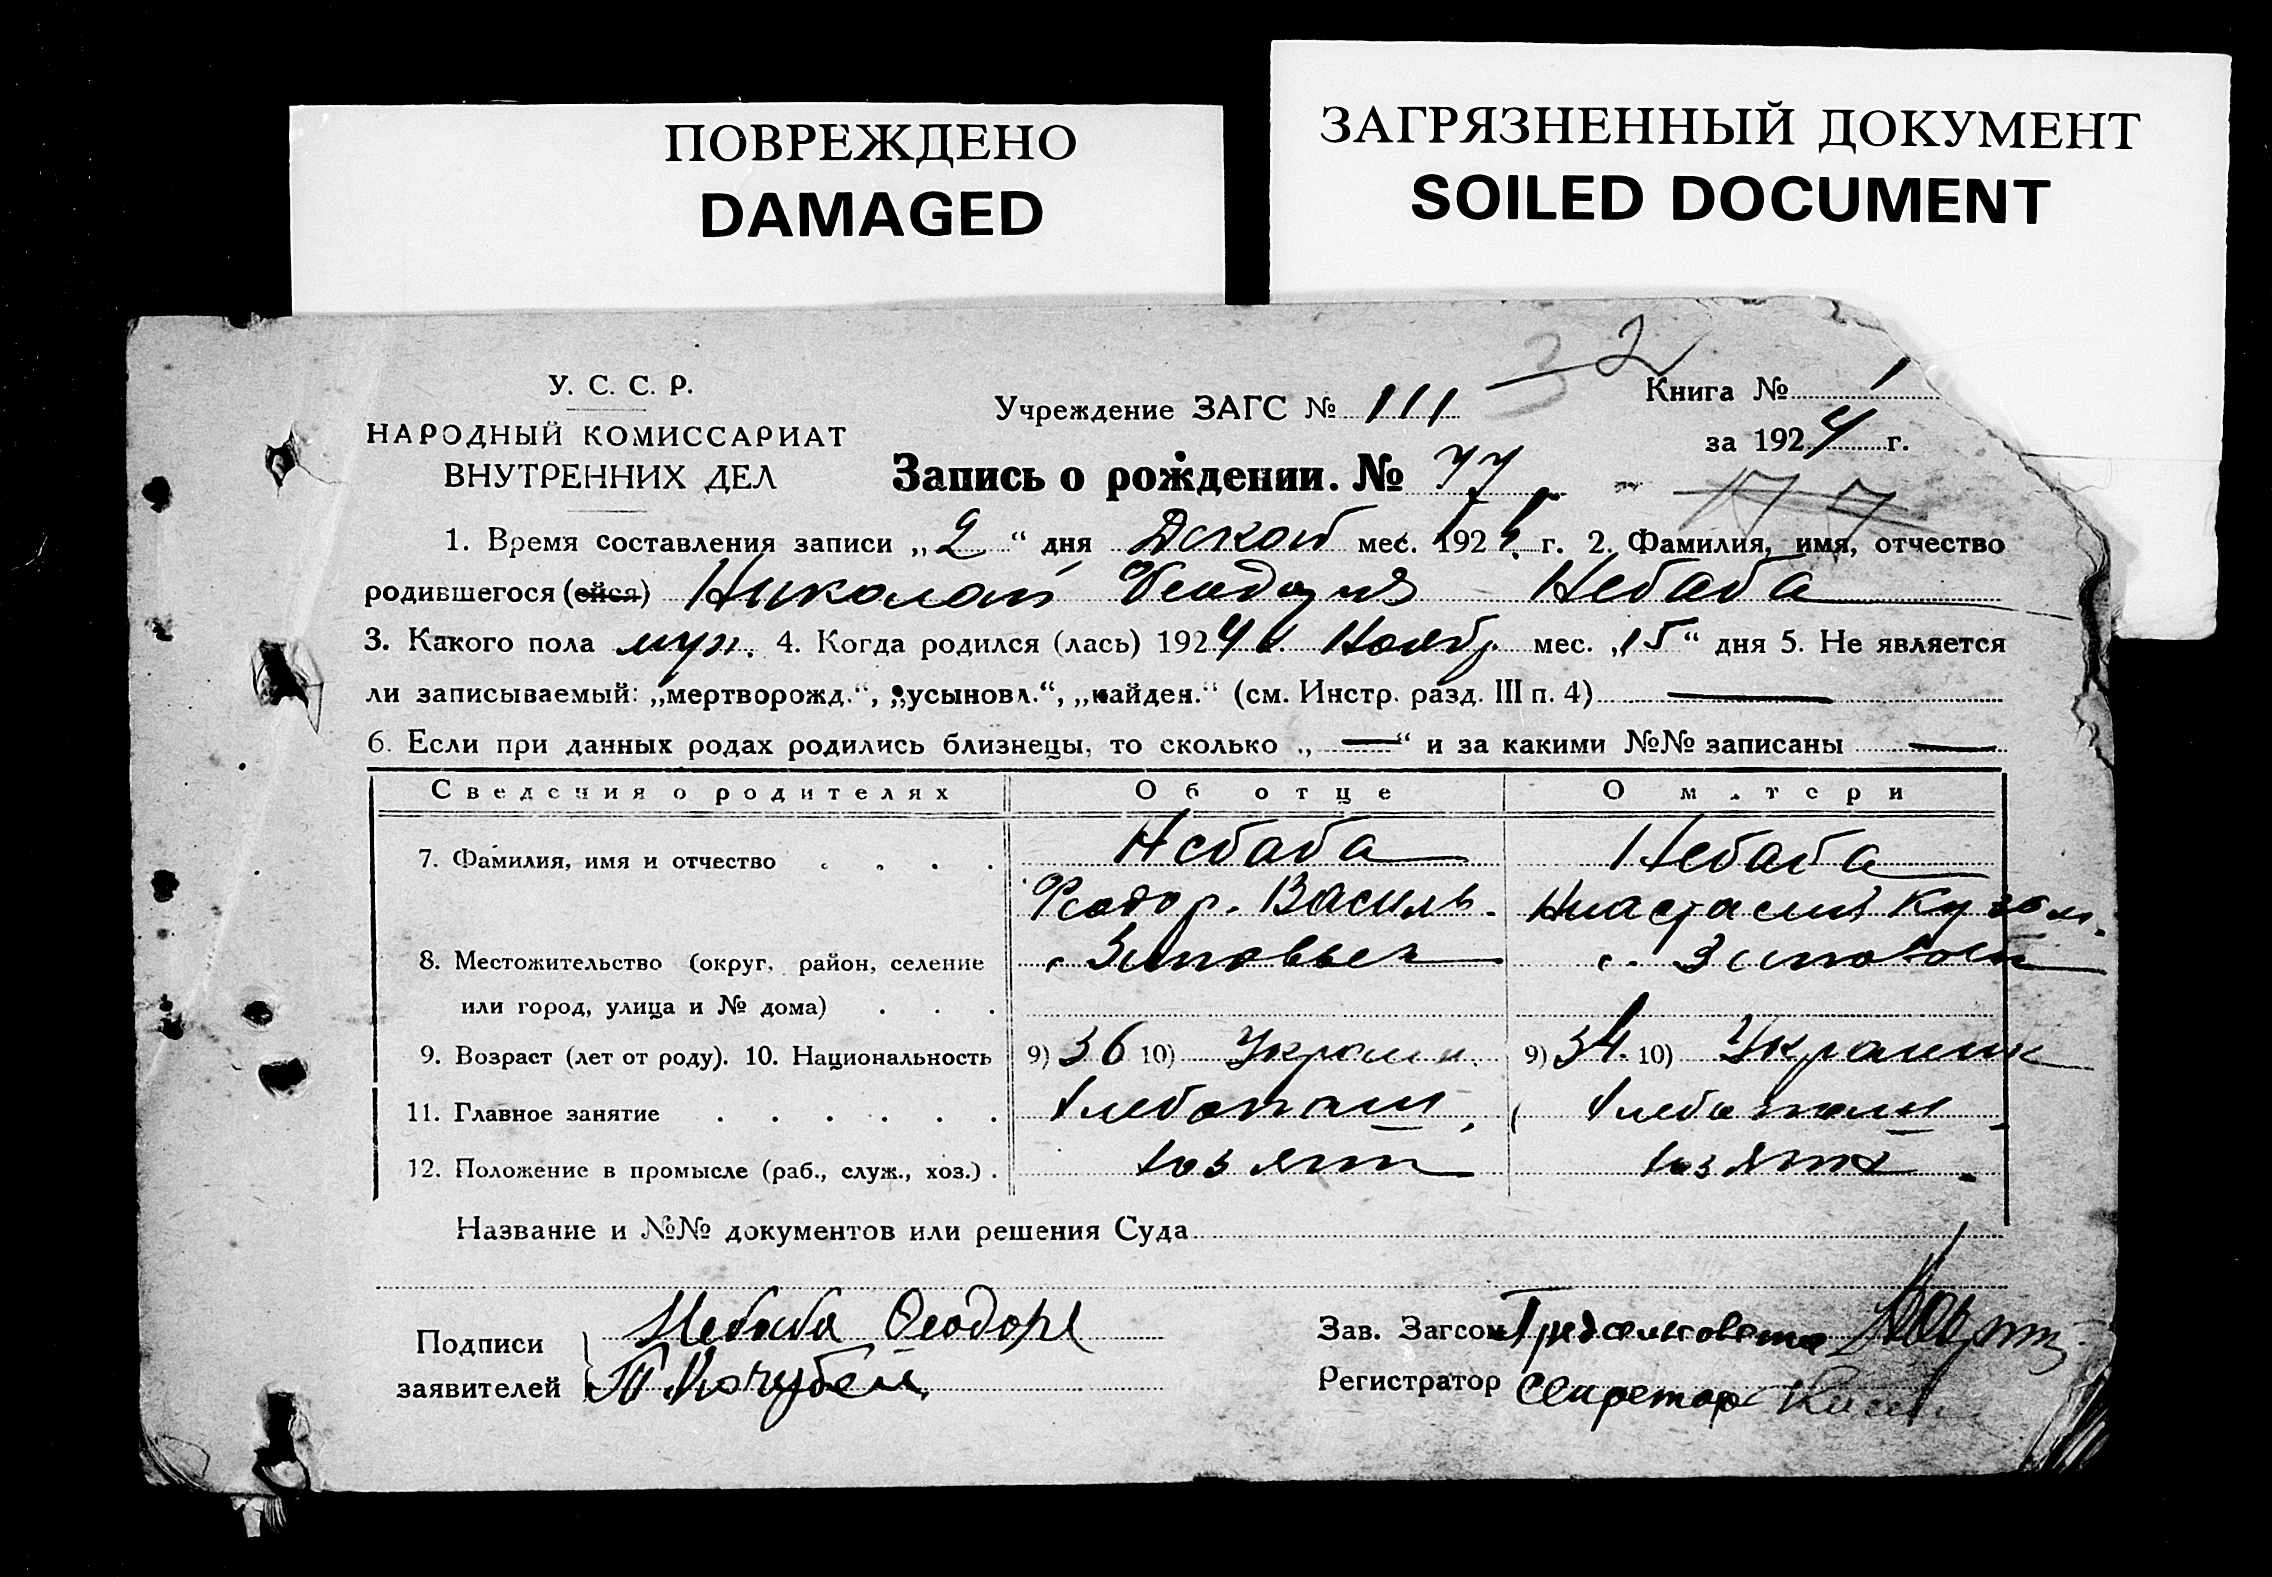 ПОВРЕЖДЕНО
DAMAGED
ЗАГРЯЗНЕННЫЙ ДОКУМЕНТ
SOILED DOCUMENT
32
У. С. С. Р.
НАРОДНЫЙ КОМИССАРИАТ
ВНУТРЕННИХ ДЕЛ
Учреждение ЗАГС № 111
Книга № 1
за 1924 г.
Запись о рождении. № 77
1. Время составления записи „2“ дня мес. 1924 г. 2. Фамилия, имя, отчество
родившегося (ейся) Николай Небаба
3. Какого пола муж. 4. Когда родился (лась) 1924 г. Ноябр. мес. „15“ дня 5. Не является
ли записываемый: „мертворожд.“, „усыновл.“, „найден.“ (см. Инстр. разд. III п. 4) —
6. Если при данных родах родились близнецы, то сколько „—“ и за какими №№ записаны —
Сведения о родителях Об отце О матери
7. Фамилия, имя и отчество Небаба Небаба
Феодор. Василь. Анастасия Кузьм.
8. Местожительство (округ, район, селение
или город, улица и № дома)
9. Возраст (лет от роду). 10. Национальность 9) 36 10) Украин. 9) 34. 10) Украинк
11. Главное занятие Хлебопаш. Хлебопаш.
12. Положение в промысле (раб., служ., хоз.)
Название и №№ документов или решения Суда
Подписи Небаба Феодоръ
заявителей Кочубей
Зав. Загсом Предсельсовета
Регистратор Секретарь